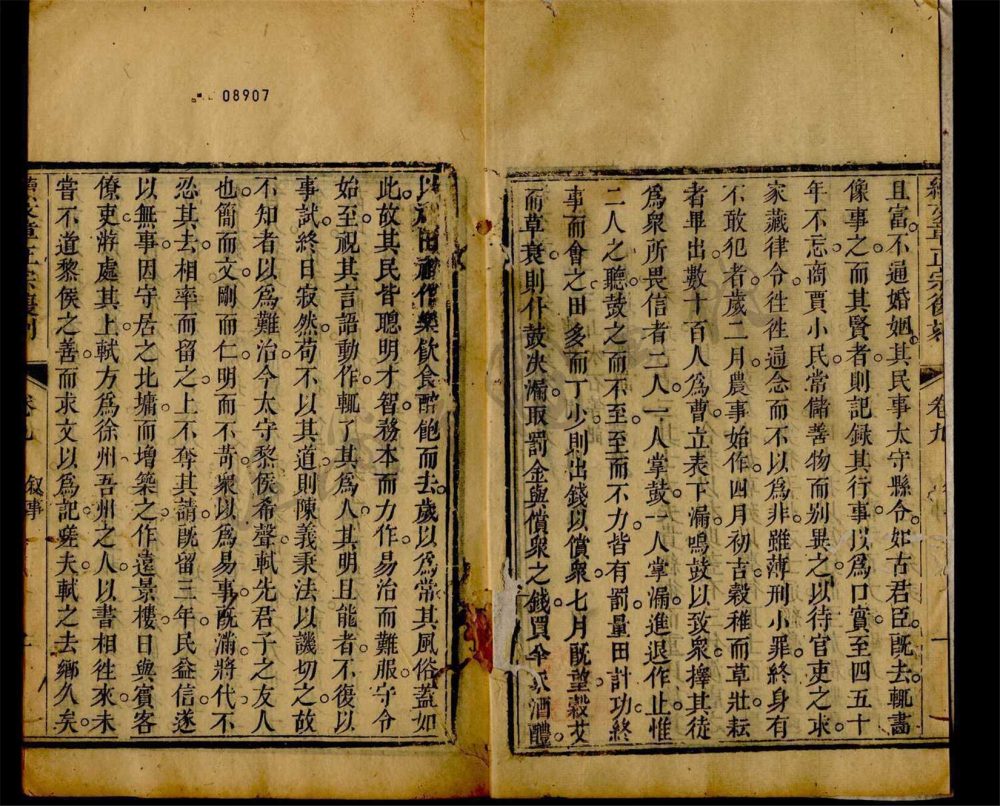 續文章正宗復刻 卷九
且富不通婚姻其民事太守縣令如古君臣既去輒畵
像事之而其賢者則記録其行事以爲口實至四五十
年不忘商賈小民常儲善物而别異之以待官吏之求
家藏律令徃徃通念而不以爲非雖薄刑小罪終身有
不敢犯者歲二月農事始作四月初吉榖稚而草壯耘
者畢出數十百人爲曹立表下漏鳴鼓以致衆擇其徒
爲衆所畏信者二人一人掌鼓一人掌漏進退作止惟
二人之聽鼓之而不至至而不力皆有罰量田計功終
事而會之田多而丁少則出錢以償衆七月既望榖艾
而草衰則仆鼓决漏取罰金與償衆之錢買羊豕酒醴
08907
以祀田祖作樂飲食醉飽而去歲以爲常其風俗葢如
此故其民皆聰明才智務本而力作易治而難服守令
始至視其言語動作輒了其爲人其明且能者不復以
事試終日寂然苟不以其道則陳義秉法以譏切之故
不知者以爲難治今太守黎侯希聲軾先君子之友人
也簡而文剛而仁明而不苛衆以爲易事既滿將代不
忍其去相率而留之上不奪其請既留三年民益信遂
以無事因守居之北墉而增築之作遠景樓日與賓客
僚吏游處其上軾方爲徐州吾州之人以書相徃來未
嘗不道黎侯之善而求文以爲記嗟夫軾之去鄉久矣
續文章正宗復刻 卷九 叙事